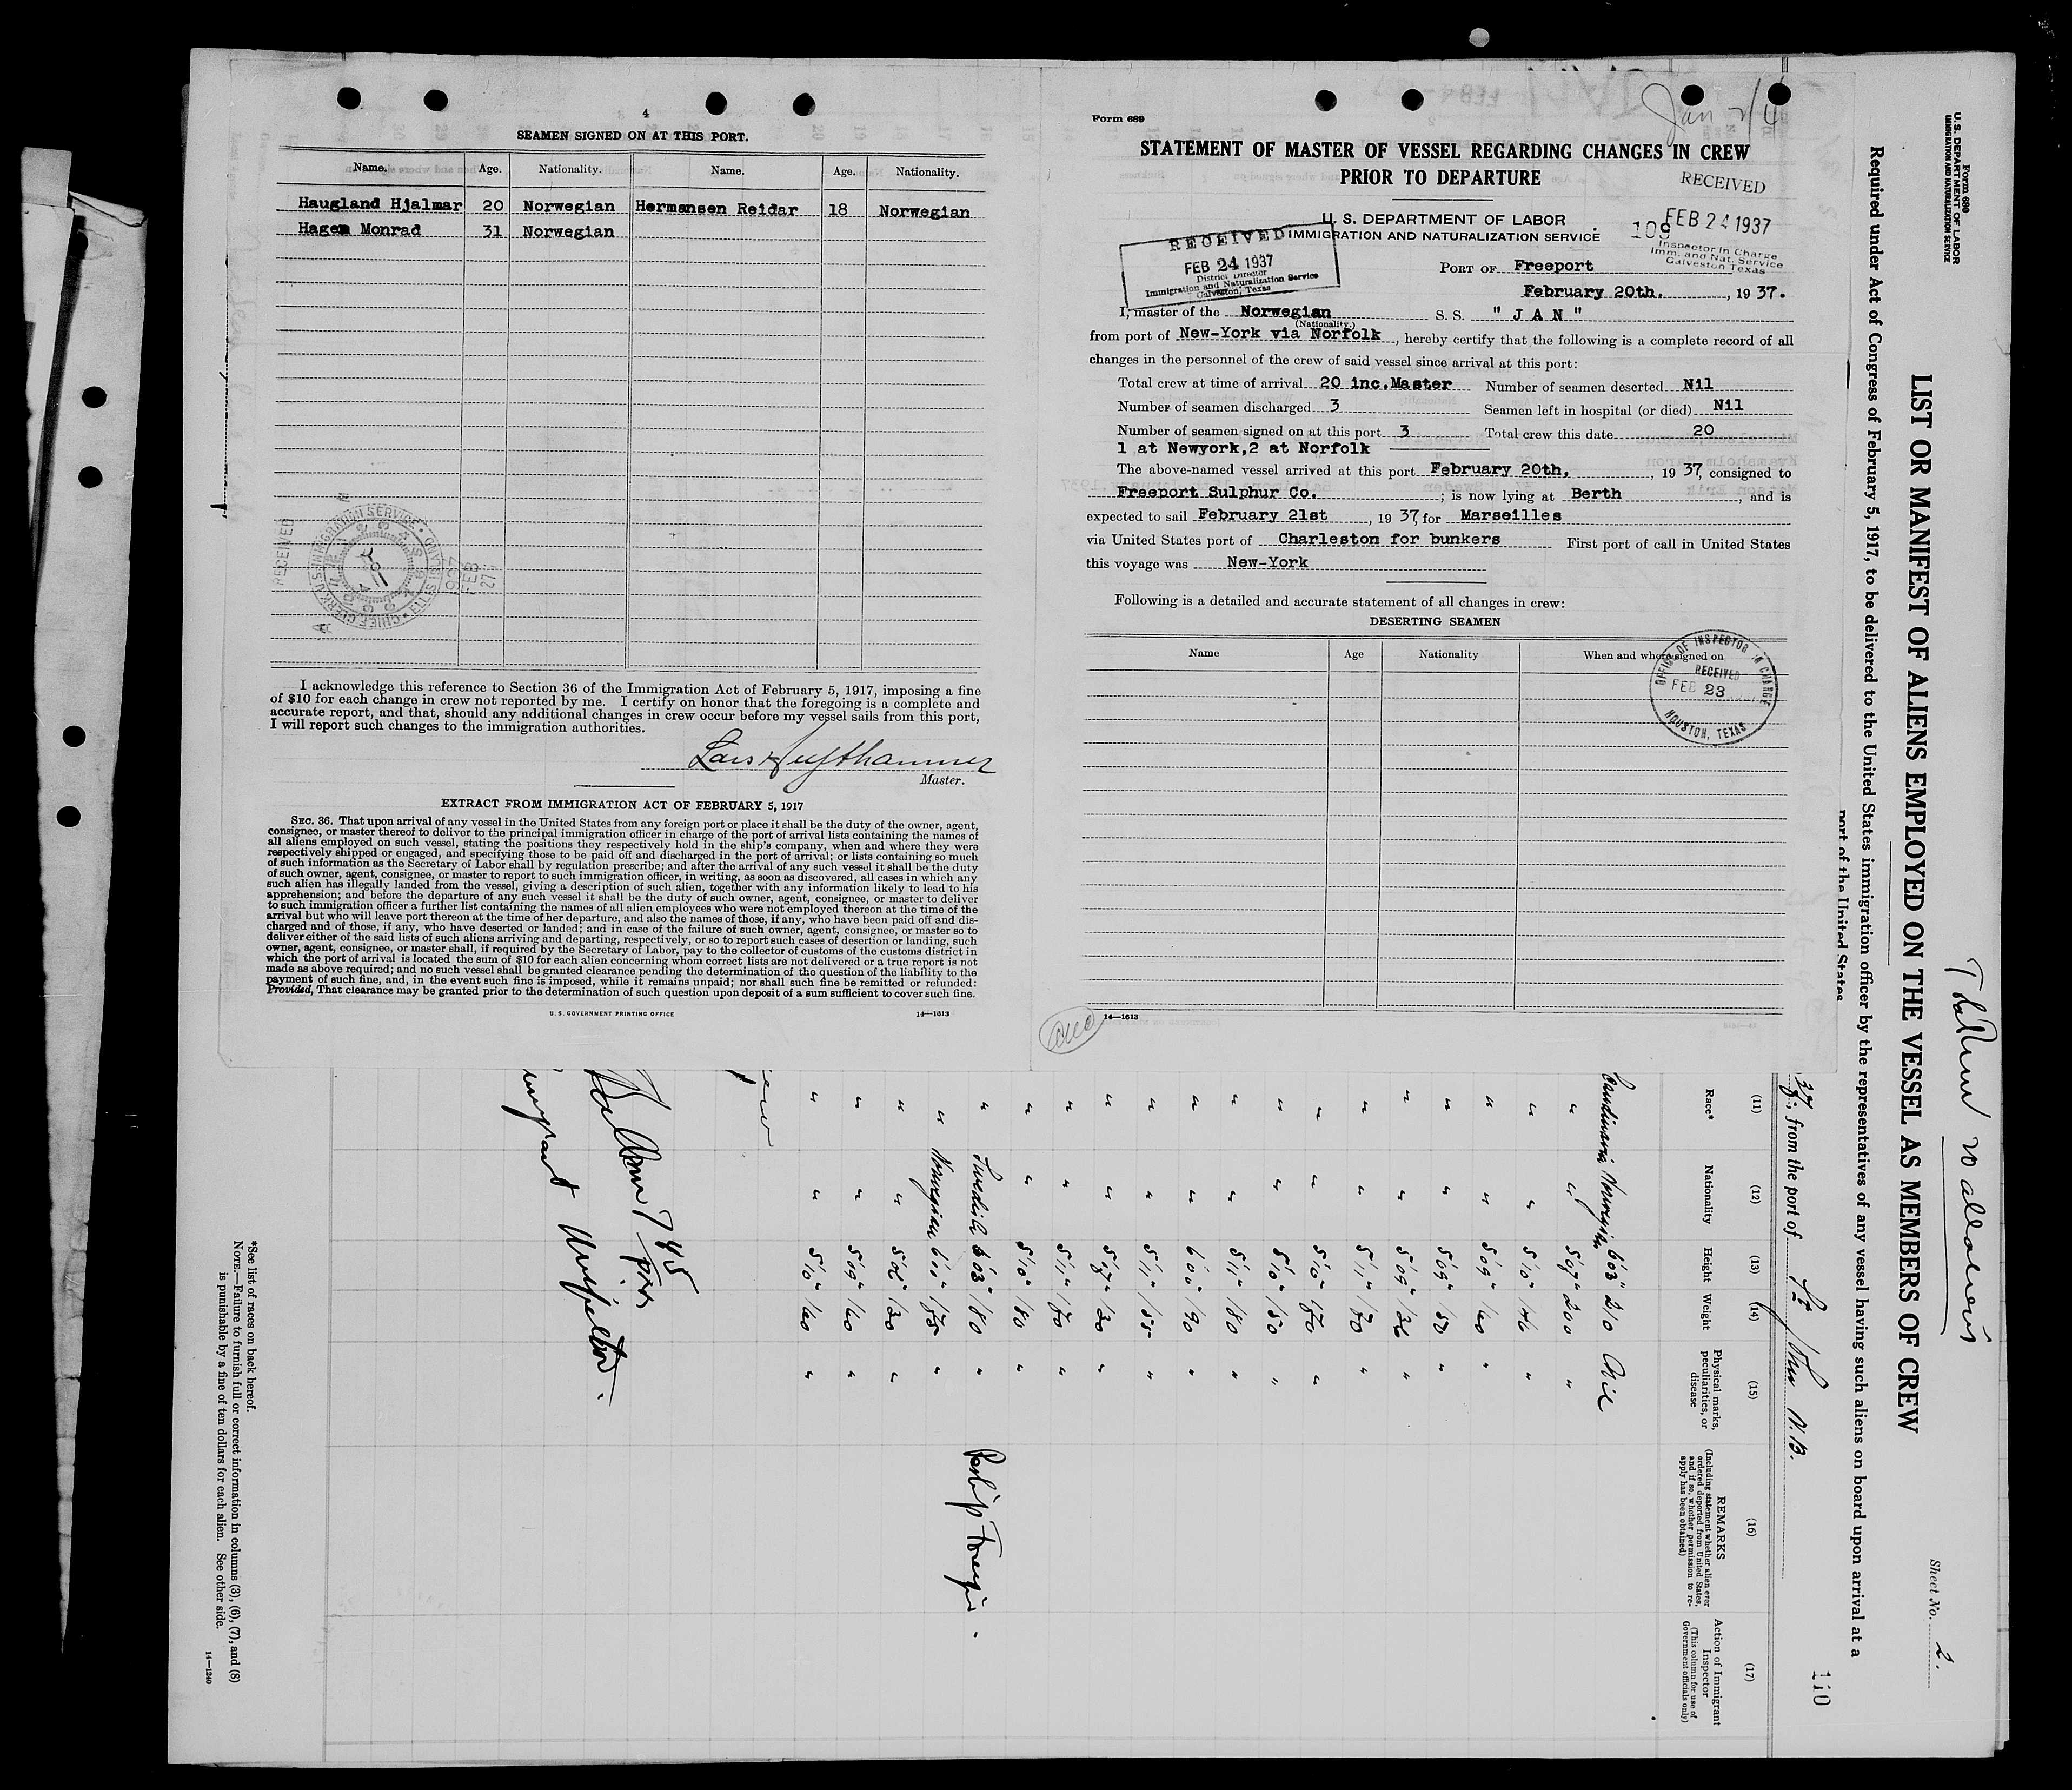 4
SEAMEN SIGNED ON AT THIS PORT.
Name. Age. Nationality. Name. Age. Nationality.
Haugland Hjalmar 20 Norwegian Hermansen Reidar 18 Norwegian
Hagen Monrad 31 Norwegian
RECEIVED
FEB 27
1937
I acknowledge this reference to Section 36 of the Immigration Act of February 5, 1917, imposing a fine
of $10 for each change in crew not reported by me. I certify on honor that the foregoing is a complete and
accurate report, and that, should any additional changes in crew occur before my vessel sails from this port,
I will report such changes to the immigration authorities.
Master.
EXTRACT FROM IMMIGRATION ACT OF FEBRUARY 5, 1917
SEC. 36. That upon arrival of any vessel in the United States from any foreign port or place it shall be the duty of the owner, agent,
consignee, or master thereof to deliver to the principal immigration officer in charge of the port of arrival lists containing the names of
all aliens employed on such vessel, stating the positions they respectively hold in the ship's company, when and where they were
respectively shipped or engaged, and specifying those to be paid off and discharged in the port of arrival; or lists containing so much
of such information as the Secretary of Labor shall by regulation prescribe; and after the arrival of any such vessel it shall be the duty
of such owner, agent, consignee, or master to report to such immigration officer, in writing, as soon as discovered, all cases in which any
such alien has illegally landed from the vessel, giving a description of such alien, together with any information likely to lead to his
apprehension; and before the departure of any such vessel it shall be the duty of such owner, agent, consignee, or master to deliver
to such immigration officer a further list containing the names of all alien employees who were not employed thereon at the time of the
arrival but who will leave port thereon at the time of her departure, and also the names of those, if any, who have been paid off and dis-
charged and of those, if any, who have deserted or landed; and in case of the failure of such owner, agent, consignee, or master so to
deliver either of the said lists of such aliens arriving and departing, respectively, or so to report such cases of desertion or landing, such
owner, agent, consignee, or master shall, if required by the Secretary of Labor, pay to the collector of customs of the customs district in
which the port of arrival is located the sum of $10 for each alien concerning whom correct lists are not delivered or a true report is not
made as above required; and no such vessel shall be granted clearance pending the determination of the question of the liability to the
payment of such fine, and, in the event such fine is imposed, while it remains unpaid; nor shall such fine be remitted or refunded:
Provided, That clearance may be granted prior to the determination of such question upon deposit of a sum sufficient to cover such fine.
U. S. GOVERNMENT PRINTING OFFICE 14—1613
Form 689
STATEMENT OF MASTER OF VESSEL REGARDING CHANGES IN CREW
PRIOR TO DEPARTURE
RECEIVED
FEB 24 1937
Inspector in Charge
Imm. and Nat. Service
Galveston Texas
109
U. S. DEPARTMENT OF LABOR
IMMIGRATION AND NATURALIZATION SERVICE
RECEIVED
FEB 24 1937
District Director
Immigration and Naturalization Service
Galveston, Texas
PORT OF Freeport
February 20th. , 19 37.
I, master of the Norwegian S. S. " J A N "
(Nationality.)
from port of New-York via Norfolk , hereby certify that the following is a complete record of all
changes in the personnel of the crew of said vessel since arrival at this port:
Total crew at time of arrival 20 inc.Master Number of seamen deserted Nil
Number of seamen discharged 3 Seamen left in hospital (or died) Nil
Number of seamen signed on at this port 3 Total crew this date 20
1 at Newyork,2 at Norfolk
The above-named vessel arrived at this port February 20th, , 19 37, consigned to
Freeport Sulphur Co. ; is now lying at Berth , and is
expected to sail February 21st , 19 37, for Marseilles
via United States port of Charleston for bunkers First port of call in United States
this voyage was New-York
Following is a detailed and accurate statement of all changes in crew:
DESERTING SEAMEN
Name Age Nationality When and where signed on
OFFICE OF INSPECTOR IN CHARGE
RECEIVED
FEB 23
HOUSTON, TEXAS
14—1613
Form 680
U. S. DEPARTMENT OF LABOR
IMMIGRATION AND NATURALIZATION SERVICE
Sheet No. 2.
LIST OR MANIFEST OF ALIENS EMPLOYED ON THE VESSEL AS MEMBERS OF CREW
Required under Act of Congress of February 5, 1917, to be delivered to the United States immigration officer by the representatives of any vessel having such aliens on board upon arrival at a
port of the United States
110
37, from the port of St John N.B.
(11) (12) (13) (14) (15) (16) (17)
Race* Nationality Height Weight Physical marks, peculiarities, or disease REMARKS (Including statement whether alien ever ordered deported from United States, and if so, whether permission to re-apply has been obtained) Action of Immigrant Inspector (This column for use of Government officials only)
Scandinavia Norwegian 6'03" 210 Nil
" " 5'07" 200 "
" " 5'10" 146 "
" " 5'09" 160 "
" " 5'09" 150 "
" " 5'09" 136 "
" " 5'11" 170 "
" " 5'10" 170 "
" " 5'10" 150 "
" " 5'11" 180 "
" " 6'00" 190 "
" " 5'11" 155 "
" " 5'07" 130 "
" " 5'11" 170 "
" " 5'10" 180 "
" Swedish 6'03" 180 "
" Norwegian 6'00" 175 "
" " 5'06" 130 "
" " 5'09" 160 "
" " 5'10" 160 "
*See list of races on back hereof.
NOTE.—Failure to furnish full or correct information in columns (3), (6), (7), and (8)
is punishable by a fine of ten dollars for each alien. See other side.
14—1240